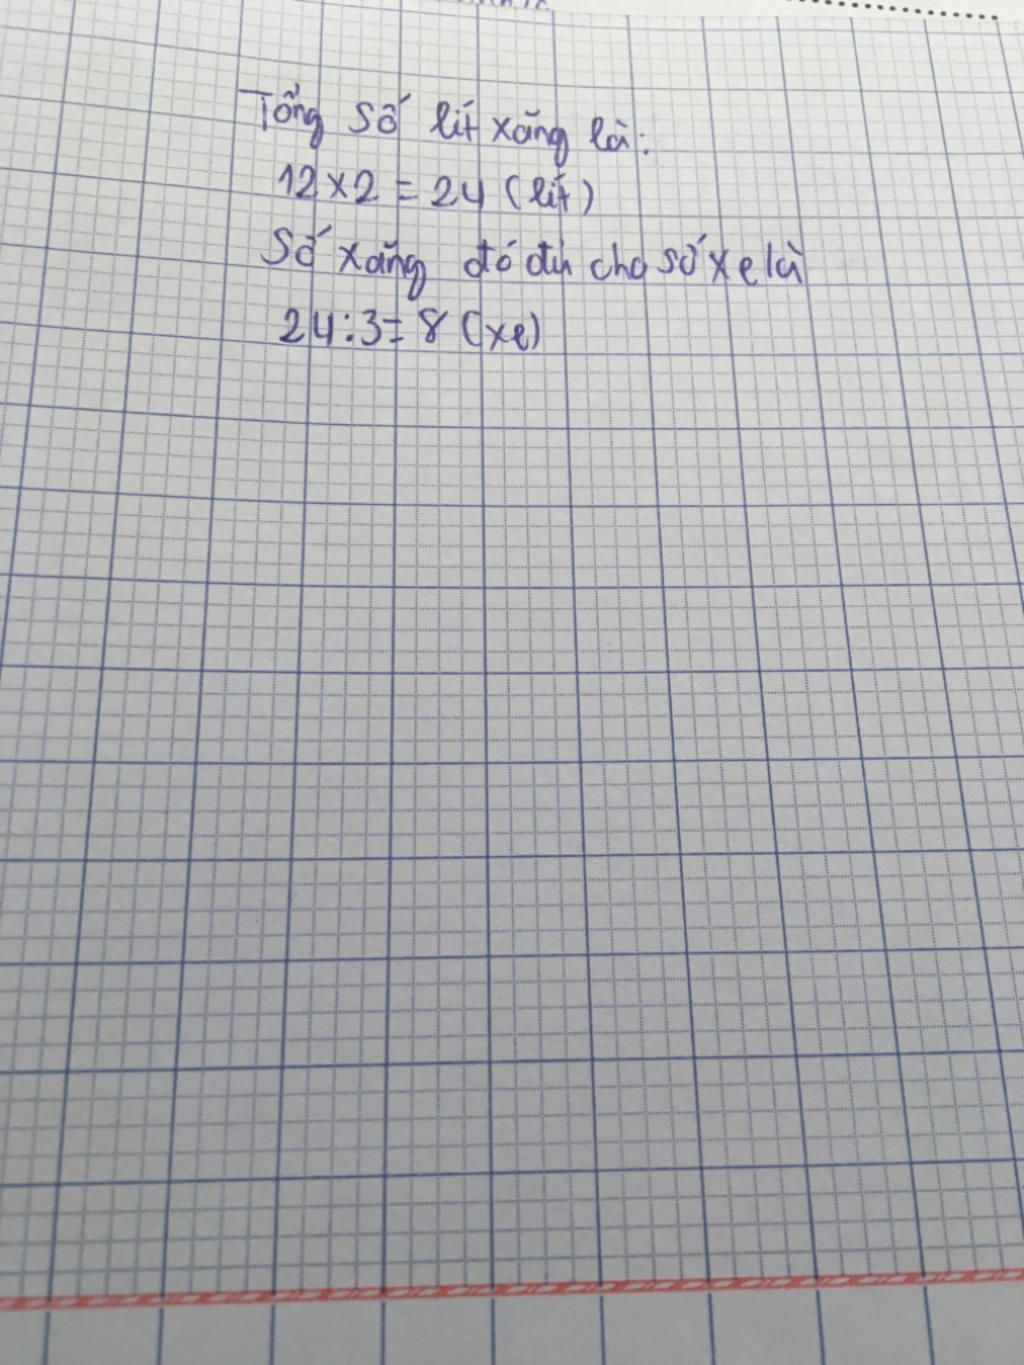 Tổng số lít xăng là:
12 x 2 = 24 (lít)
Số xăng đó đủ cho số xe là
24 : 3 = 8 (xe)